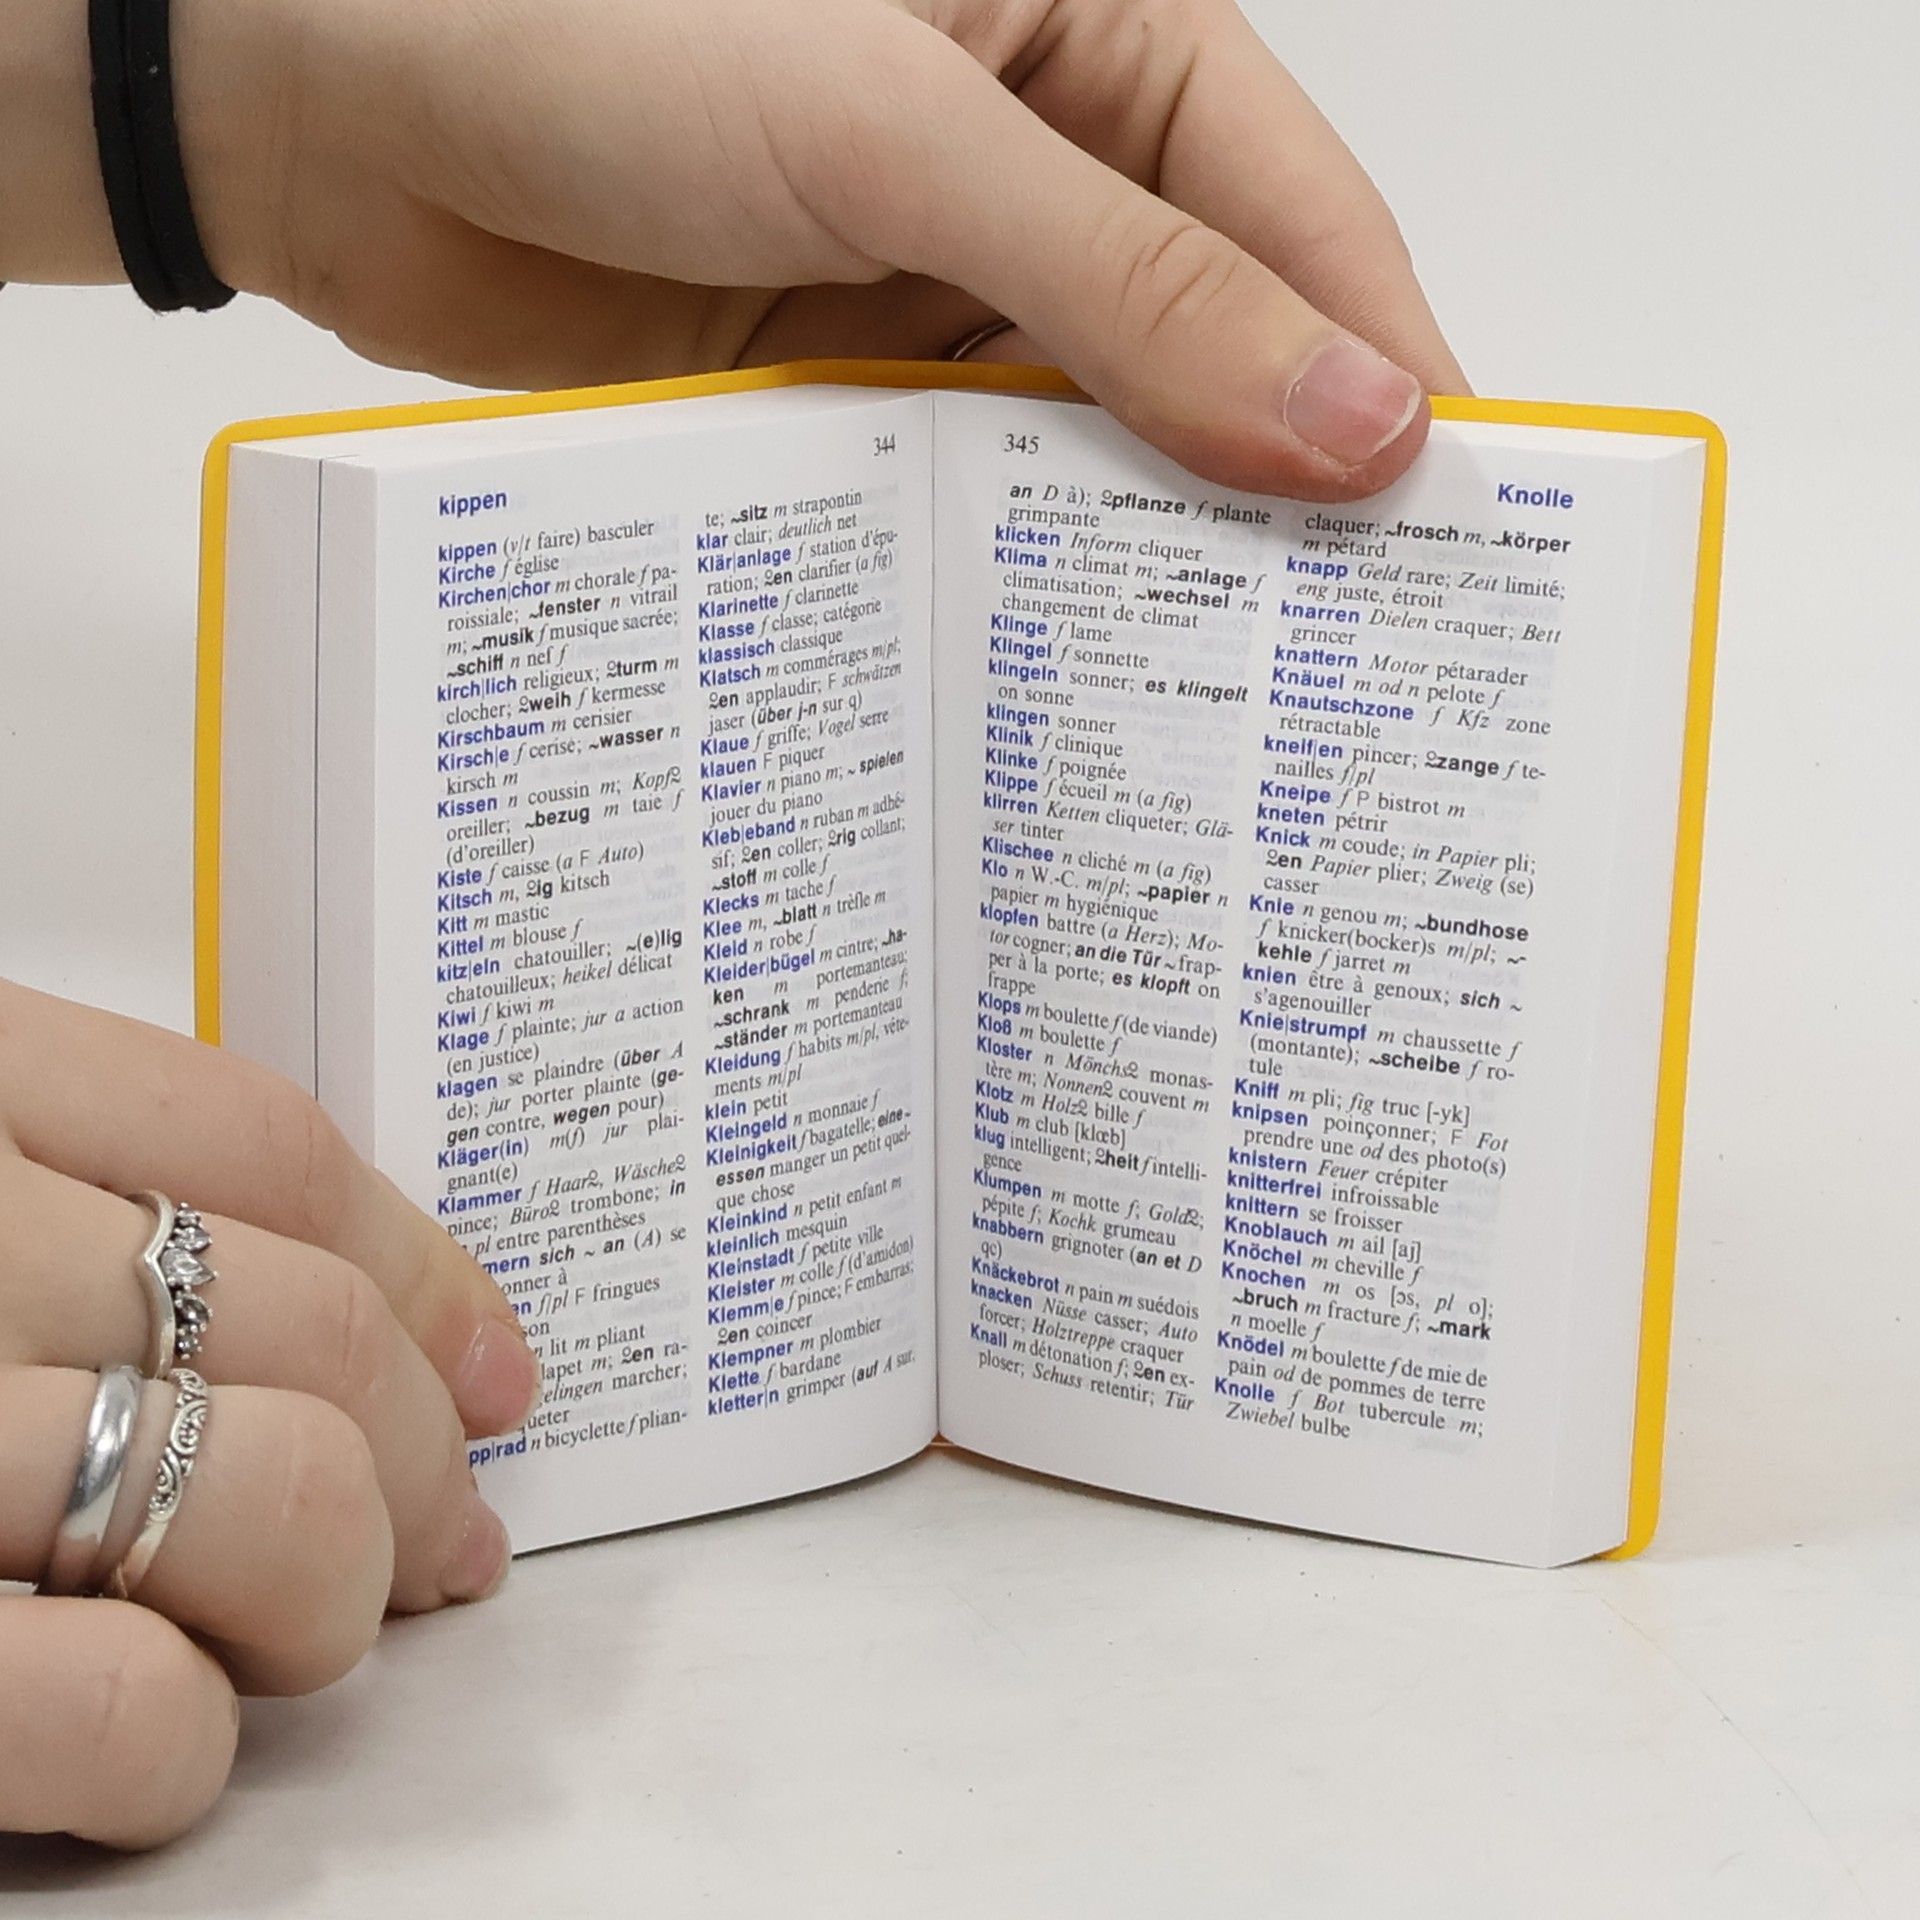 344
kippen
kippen (v/t faire) basculer
Kirche f église
Kirchen|chor m chorale f pa-
roissiale; ~fenster n vitrail
m; ~musik f musique sacrée;
~schiff n nef f
kirch|lich religieux; ♀turm m
clocher; ♀weih f kermesse
Kirschbaum m cerisier
Kirsch|e f cerise; ~wasser n
kirsch m
Kissen n coussin m; Kopf♀
oreiller; ~bezug m taie f
(d'oreiller)
Kiste f caisse (a F Auto)
Kitsch m, ♀ig kitsch
Kitt m mastic
Kittel m blouse f
kitz|eln chatouiller; ~(e)lig
chatouilleux; heikel délicat
Kiwi f kiwi m
Klage f plainte; jur a action
(en justice)
klagen se plaindre (über A
de); jur porter plainte (ge-
gen contre, wegen pour)
Kläger(in) m(f) jur plai-
gnant(e)
Klammer f Haar♀, Wäsche♀
pince; Büro♀ trombone; in
pl entre parenthèses
mern sich ~ an (A) se
onner à
en f/pl F fringues
son
n lit m pliant
lapet m; ♀en ra-
elingen marcher;
ueter
pp|rad n bicyclette f plian-
te; ~sitz m strapontin
klar clair; deutlich net
Klär|anlage f station d'épu-
ration; ♀en clarifier (a fig)
Klarinette f clarinette
Klasse f classe; catégorie
klassisch classique
Klatsch m commérages m/pl;
♀en applaudir; F schwätzen
jaser (über j-n sur q)
Klaue f griffe; Vogel serre
klauen F piquer
Klavier n piano m; ~ spielen
jouer du piano
Kleb|eband n ruban m adhé-
sif; ♀en coller; ♀rig collant;
~stoff m colle f
Klecks m tache f
Klee m, ~blatt n trèfle m
Kleid n robe f
Kleider|bügel m cintre; ~ha-
ken m portemanteau;
~schrank m penderie f;
~ständer m portemanteau
Kleidung f habits m/pl, vête-
ments m/pl
klein petit
Kleingeld n monnaie f
Kleinigkeit f bagatelle; eine ~
essen manger un petit quel-
que chose
Kleinkind n petit enfant m
kleinlich mesquin
Kleinstadt f petite ville
Kleister m colle f (d'amidon)
Klemm|e f pince; F embarras;
♀en coincer
Klempner m plombier
Klette f bardane
kletter|n grimper (auf A sur,
345
Knolle
an D à); ♀pflanze f plante
grimpante
klicken Inform cliquer
Klima n climat m; ~anlage f
climatisation; ~wechsel m
changement de climat
Klinge f lame
Klingel f sonnette
klingeln sonner; es klingelt
on sonne
klingen sonner
Klinik f clinique
Klinke f poignée
Klippe f écueil m (a fig)
klirren Ketten cliqueter; Glä-
ser tinter
Klischee n cliché m (a fig)
Klo n W.-C. m/pl; ~papier n
papier m hygiénique
klopfen battre (a Herz); Mo-
tor cogner; an die Tür ~ frap-
per à la porte; es klopft on
frappe
Klops m boulette f (de viande)
Kloß m boulette f
Kloster n Mönchs♀ monas-
tère m; Nonnen♀ couvent m
Klotz m Holz♀ bille f
Klub m club [klœb]
klug intelligent; ♀heit f intelli-
gence
Klumpen m motte f; Gold♀;
pépite f; Kochk grumeau
knabbern grignoter (an et D
qc)
Knäckebrot n pain m suédois
knacken Nüsse casser; Auto
forcer; Holztreppe craquer
Knall m détonation f; ♀en ex-
ploser; Schuss retentir; Tür
claquer; ~frosch m, ~körper
m pétard
knapp Geld rare; Zeit limité;
eng juste, étroit
knarren Dielen craquer; Bett
grincer
knattern Motor pétarader
Knäuel m od n pelote f
Knautschzone f Kfz zone
rétractable
kneif|en pincer; ♀zange f te-
nailles f/pl
Kneipe f P bistrot m
kneten pétrir
Knick m coude; in Papier pli;
♀en Papier plier; Zweig (se)
casser
Knie n genou m; ~bundhose
f knicker(bocker)s m/pl; ~-
kehle f jarret m
knien être à genoux; sich ~
s'agenouiller
Knie|strumpf m chaussette f
(montante); ~scheibe f ro-
tule
Kniff m pli; fig truc [-yk]
knipsen poinçonner; F Fot
prendre une od des photo(s)
knistern Feuer crépiter
knitterfrei infroissable
knittern se froisser
Knoblauch m ail [aj]
Knöchel m cheville f
Knochen m os [ɔs, pl o];
~bruch m fracture f; ~mark
n moelle f
Knödel m boulette f de mie de
pain od de pommes de terre
Knolle f Bot tubercule m;
Zwiebel bulbe